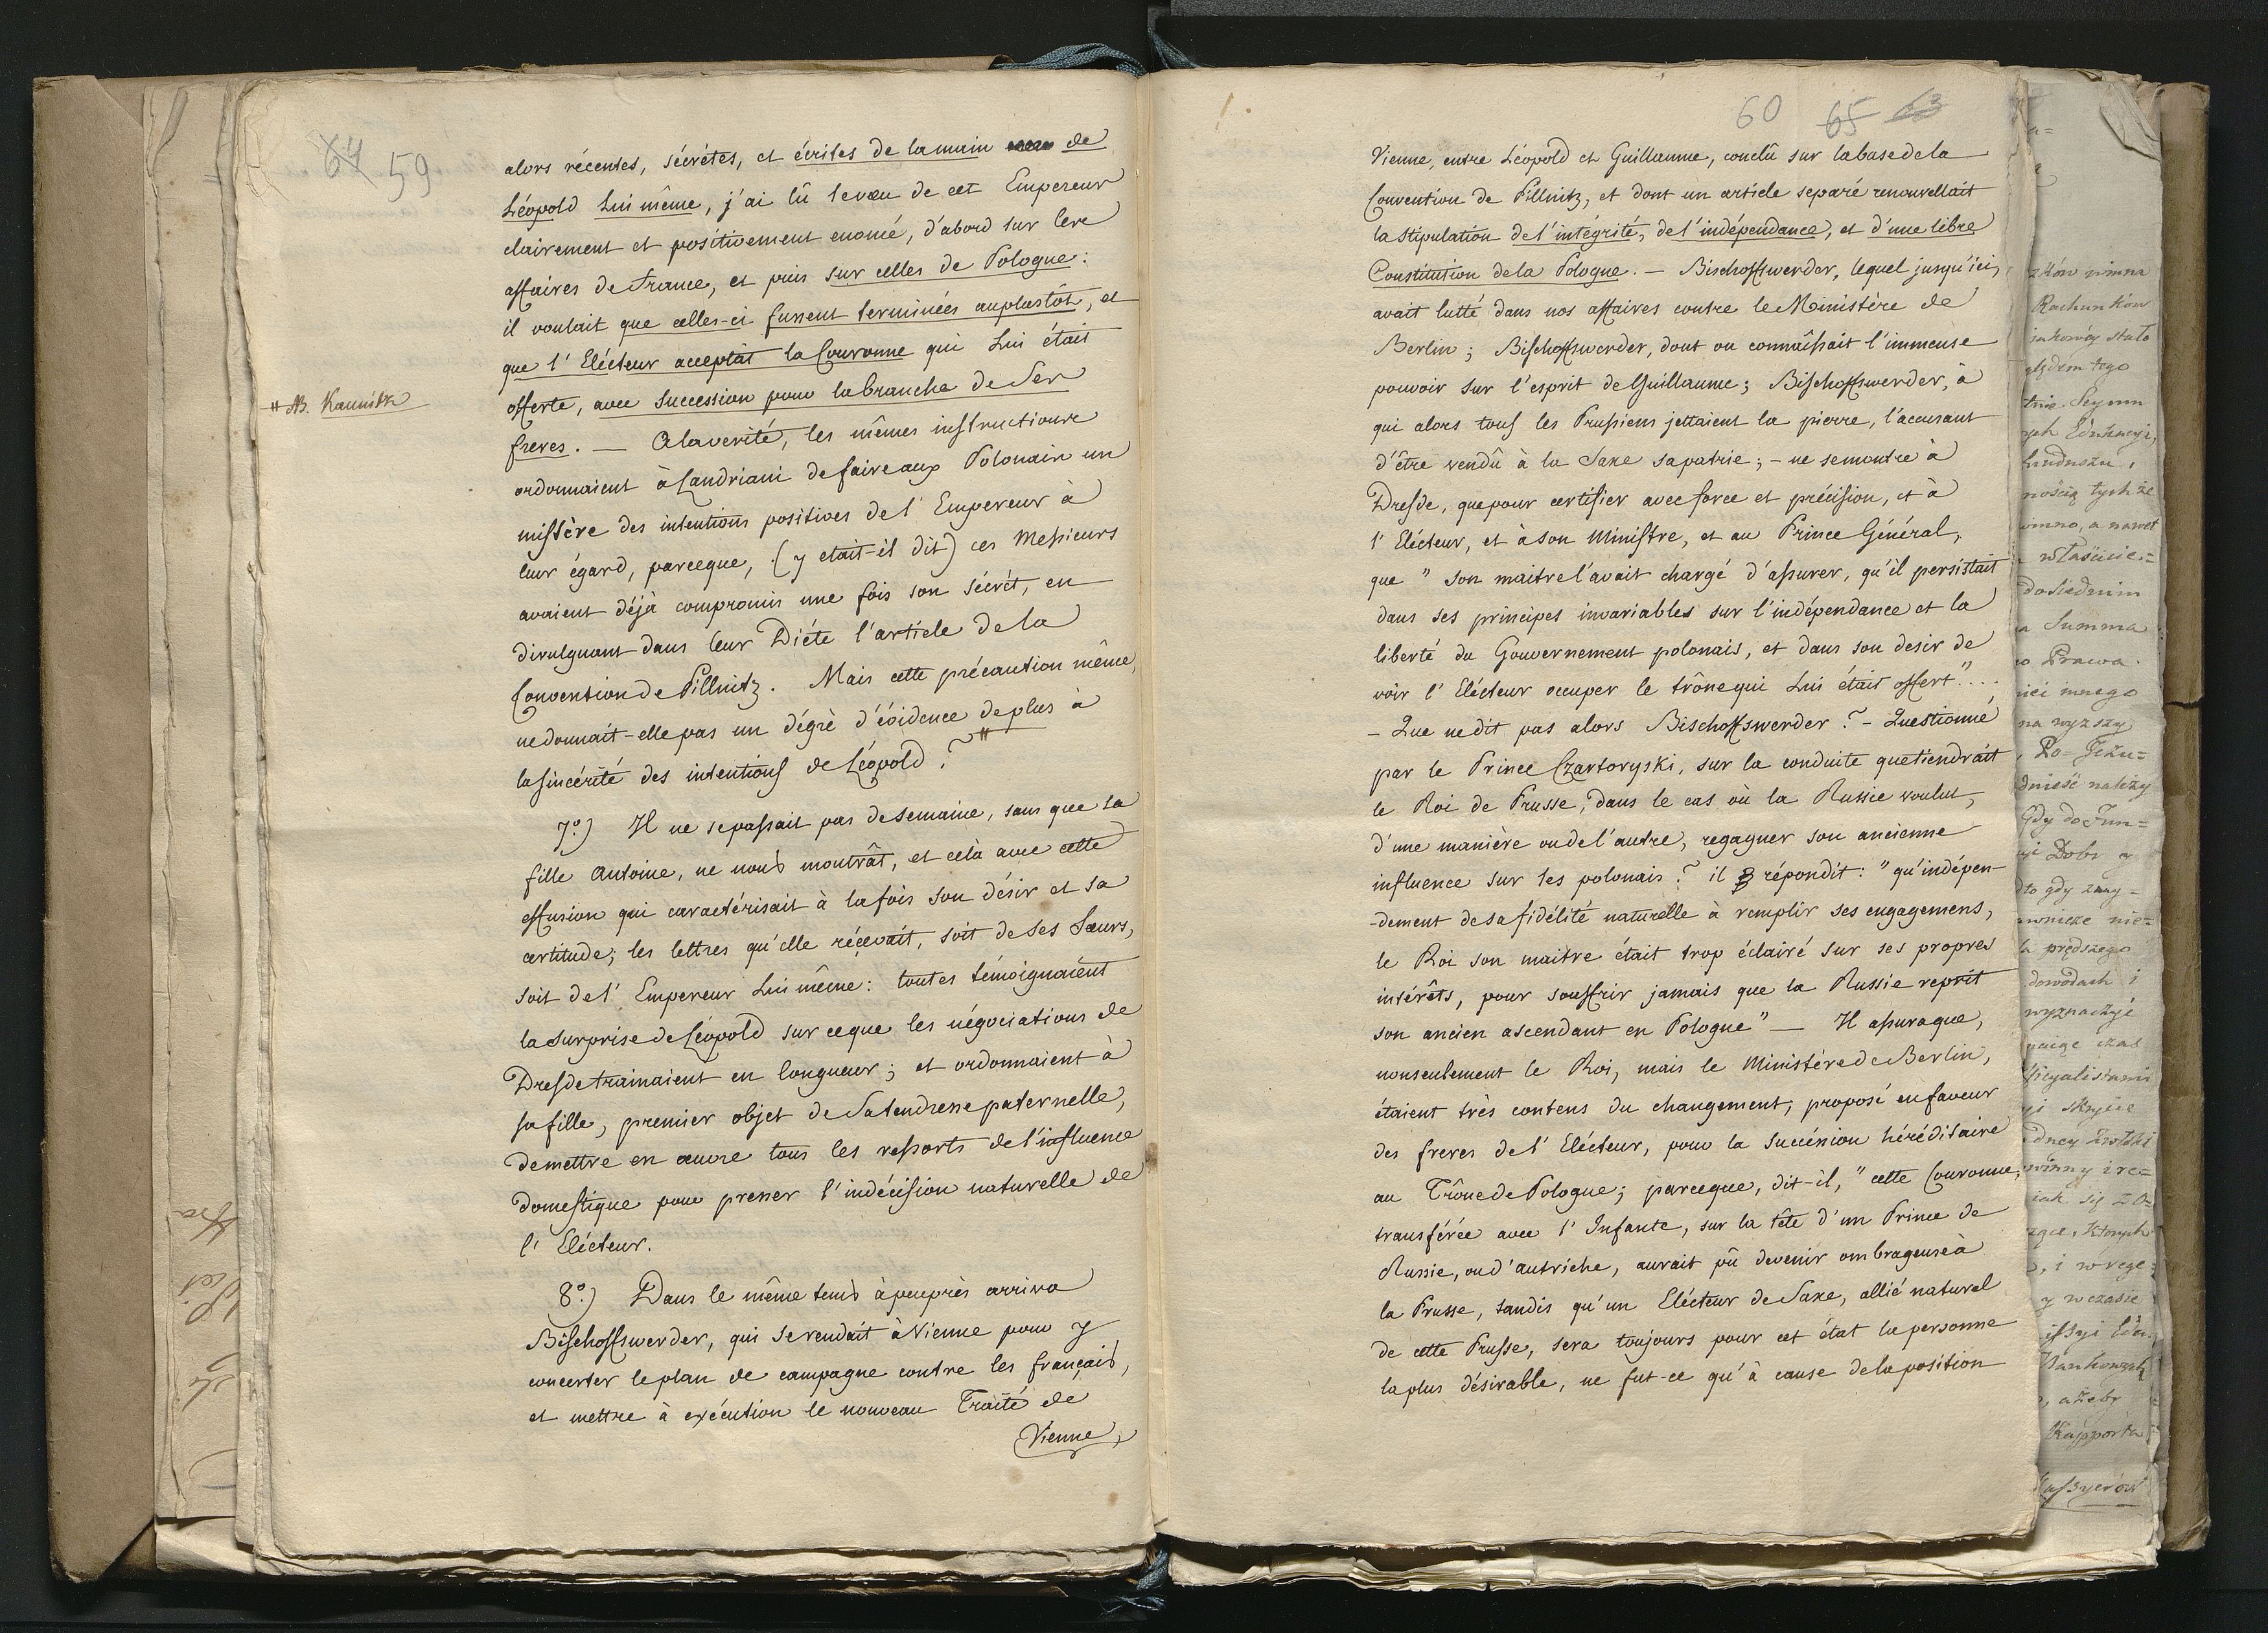 64 59
alors récentes, sécrétes, et écrites de la main de
Léopold Lui même, j'ai lû le vœu de cet Empereur
clairement et positivement enoncé, d'abord sur les
affaires de France, et puis sur celles de Pologne:
il voulait que celles-ci fussent terminées au plustôt, et
que l'Elécteur acceptât la Couronne qui Lui était
offerte, avec succession pour la branche de Ses
freres. — A la verité, les mêmes instructions
ordonnaient à Landriani de faire aux Polonais un
mistère des intentions positives de l'Empereur à
leur égard, parceque, (y etait-il dit) ces Messieurs
avaient déjà compromis une fois son sécrét, en
divulguant dans leur Diéte l'article de la
Convention de Pillnitz. Mais cette précaution même,
ne donnait-elle pas un dégrè d'évidence de plus à
la sincérité des intentions de Léopold?"
" NB. Kaunitz
7°.) Il ne se passait pas de semaine, sans que sa
fille Antoine, ne nous montrât, et cela avec cette
effusion qui caractérisait à la fois son désir et sa
certitude; les lettres qu'elle réçevait, soit de ses Sœurs,
soit de l'Empereur Lui même: toutes témoignaient
la surprise de Léopold sur ce que les négociations de
Dresde trainaient en longueur; et ordonnaient à
sa fille, premier objet de Sa tendresse paternelle,
de mettre en œuvre tous les ressorts de l'influence
domestique pour presser l'indécision naturelle de
l'Elécteur.
8°.) Dans le même tems à peuprès arriva
Bischoffswerder, qui se rendait à Vienne pour y
concerter le plan de campagne contre les français,
et mettre à exécution le nouveau Traité de
Vienne,
60 65 63
Vienne, entre Léopold et Guillaume, conclû sur la base de la
Convention de Pillnitz, et dont un article separé renouvellait
la stipulation de l'intégrité, de l'indépendance, et d'une libre
Constitution de la Pologne. — Bischoffswerder, lequel jusqu'ici,
avait lutté dans nos affaires contre le Ministère de
Berlin; Bischoffswerder, dont on connâissait l'immense
pouvoir sur l'esprit de Guillaume; Bischoffswerder, à
qui alors tous les Prussiens jettaient la pierre, l'accusant
d'être vendû à la Saxe sa patrie; – ne se montre à
Dresde, que pour certifier avec force et précision, et à
l'Elécteur, et à son Ministre, et au Prince Général,
que " son maitre l'avait chargé d'assurer, qu'il persistait
dans ses principes invariables sur l'indépendance et la
liberté du Gouvernement polonais, et dans son desir de
voir l'Elécteur occuper le trône qui Lui était offert"...
– Que ne dit pas alors Bischoffswerder? – Questionné
par le Prince Czartoryski, sur la conduite que tiendrait
le Roi de Prusse, dans le cas où la Russie voulut,
d'une manière ou de l'autre, regagner son ancienne
influence sur les polonais? il répondit: " qu'indépen-
-dement de sa fidélité naturelle à remplir ses engagemens,
le Roi son maitre était trop éclairé sur ses propres
intérêts, pour souffrir jamais que la Russie reprit
son ancien ascendant en Pologne" — Il assura que,
nonseulement le Roi, mais le Ministére de Berlin,
étaient très contens du changement, proposé en faveur
des freres de l'Elécteur, pour la succession héréditaire
au Trône de Pologne; parceque, dit-il, " cette Couronne,
transférée avec l'Infante, sur la tête d'un Prince de
Russie, ou d'autriche, aurait pû devenir ombrageuse à
la Prusse, tandis qu'un Elécteur de Saxe, allié naturel
de cette Prusse, sera toujours pour cet état la personne
la plus désirable, ne fut-ce qu'à cause de la position
Rachunków
Summa
Prawa
innego
na wyzszy
należy
prędszego
dowodach i